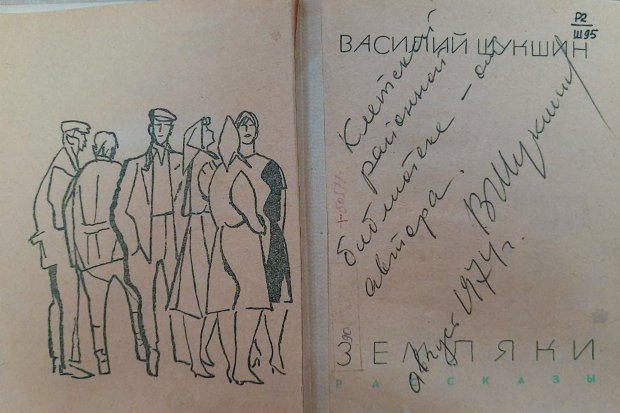 Р2
Ш95
ВАСИЛИЙ ШУКШИН
Клетской
районной
библиотеке – от
автора.
ВШукшин
август 1974 г.
ЗЕМЛЯКИ
РАССКАЗЫ